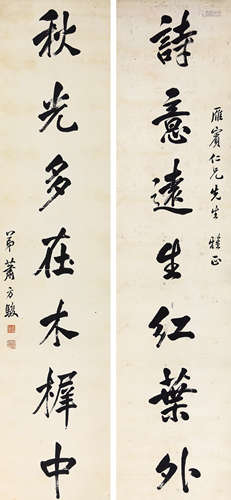 雁賓仁兄先生 雅正
詩意遠生紅葉外
秋光多在木樨中
弟蕭方駿